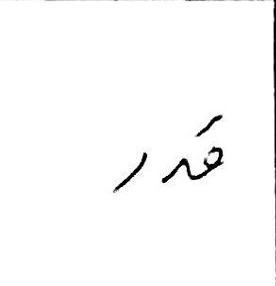 قدر